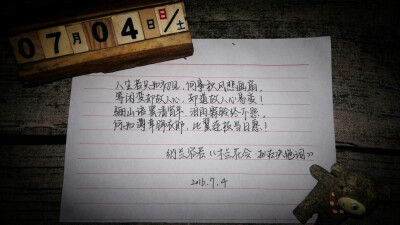 07月04日/土
人生若只如初见,何事秋风悲画扇。
等闲变却故人心,却道故人心易变!
骊山语罢清宵半,泪雨霖铃终不怨。
何如薄幸锦衣郎,比翼连枝当日愿!
纳兰容若《木兰花令 拟古决绝词》
2016.7.4